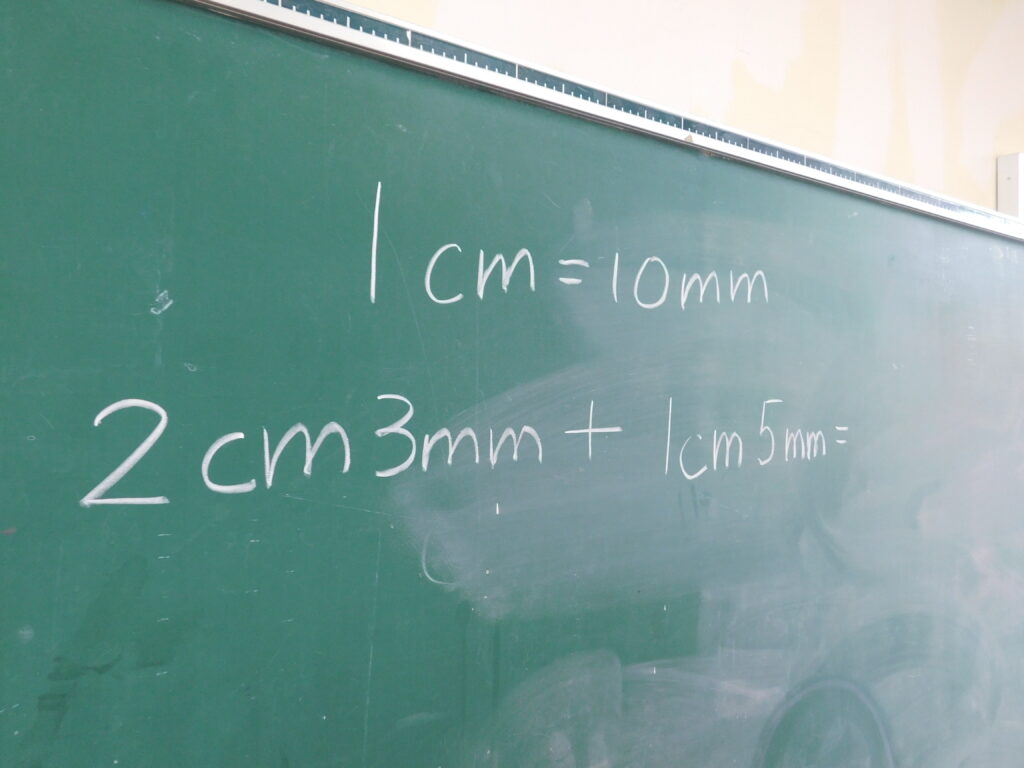 1 cm = 10mm
2cm3mm + 1cm5mm=